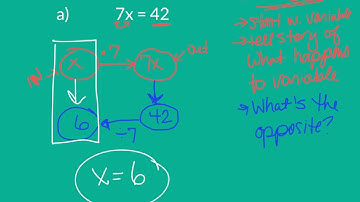 a) 7x = 42
→ start w. variable
→ tell story of
what happens
to variable
→ What's the
opposite?
IN x •7 7x out
6 ÷7 42
x = 6